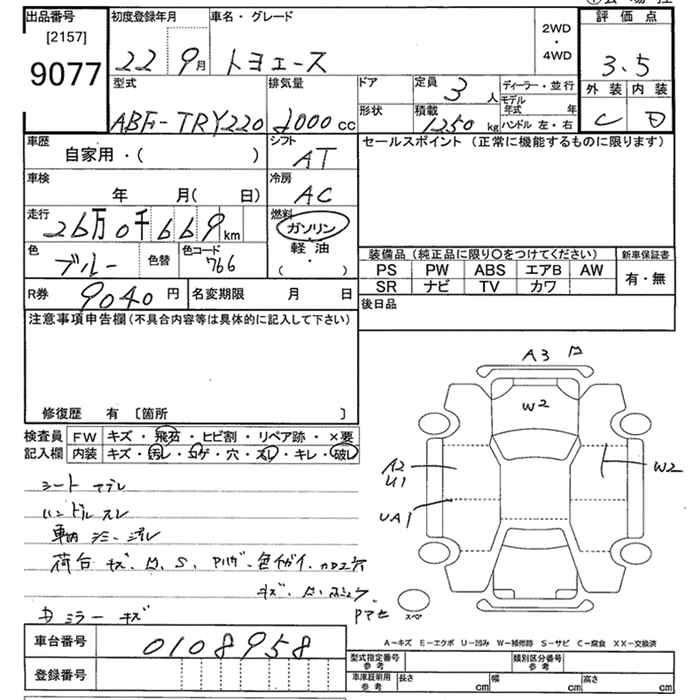 出品番号 初度登録年月 車名・グレード 2WD・4WD 評価点
[2157]
9077 22 9月 トヨエース 3.5
型式 排気量 ドア 定員 3人 ディーラー・並行 外装 内装
ABF-TRY220 2000cc 形状 積載 1250kg モデル年式 年 ハンドル 左・右 C D
車歴 自家用・( ) シフト AT セールスポイント (正常に機能するものに限ります)
車検 年 月( 日) 冷房 AC
走行 26万0千669km 燃料 ガソリン・軽油・( )
色 ブルー 色替 色コード 766
装備品 (純正品に限り○をつけてください) 新車保証書
PS PW ABS エアB AW 有・無
SR ナビ TV カワ
R券 9040円 名変期限 月 日 後日品
注意事項申告欄(不具合内容等は具体的に記入して下さい)
修復歴 有 [箇所 ]
A3
W2
A2
U1
W2
UA1
検査員 FW キズ・飛石・ヒビ割・リペア跡・×要
記入欄 内装 キズ・汚レ・コゲ・穴・スレ・キレ・破レ
シート ヤブレ
ハンドル スレ
荷台 キズ
ミラー キズ
スペア
車台番号 0108958
登録番号
A-キズ E-エクボ U-凹み W-補修跡 S-サビ C-腐食 XX-交換済
型式指定番号 参考 類別区分番号 参考
車庫証明用 参考 長さ cm 幅 cm 高さ cm